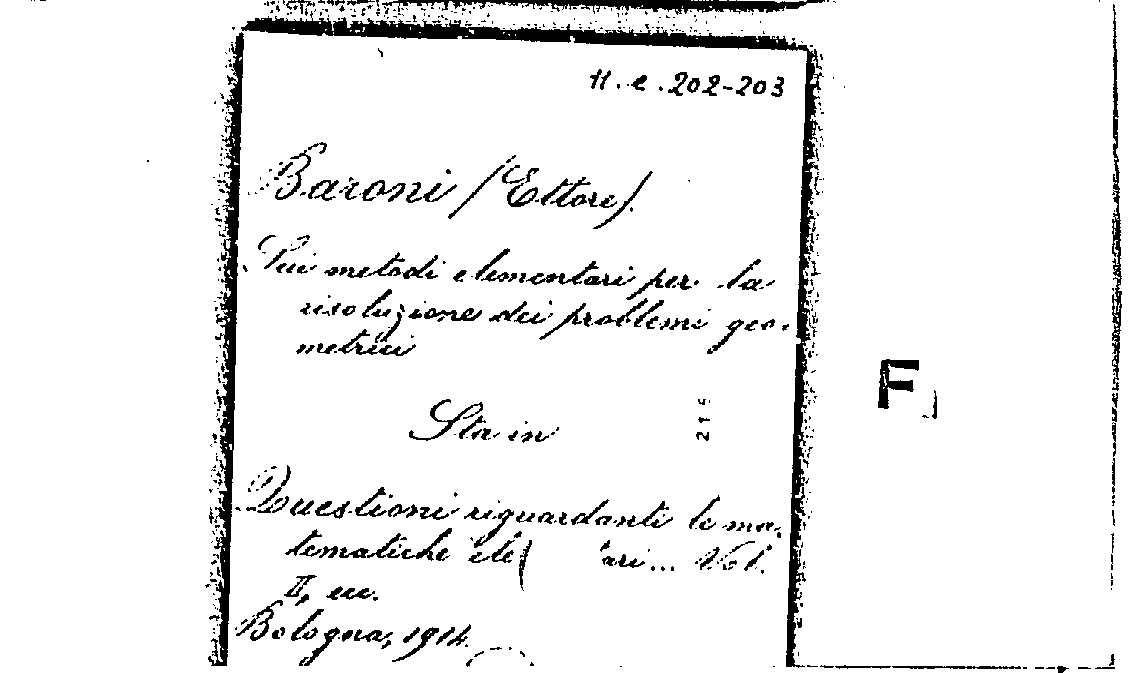 11.e.202-203
Baroni (Ettore).
Sui metodi elementari per la
risoluzione dei problemi geo-
metrici
F
Sta in
Questioni riguardanti le ma-
tematiche ele( 'ari... Vol.
II, ecc.
Bologna, 1914.